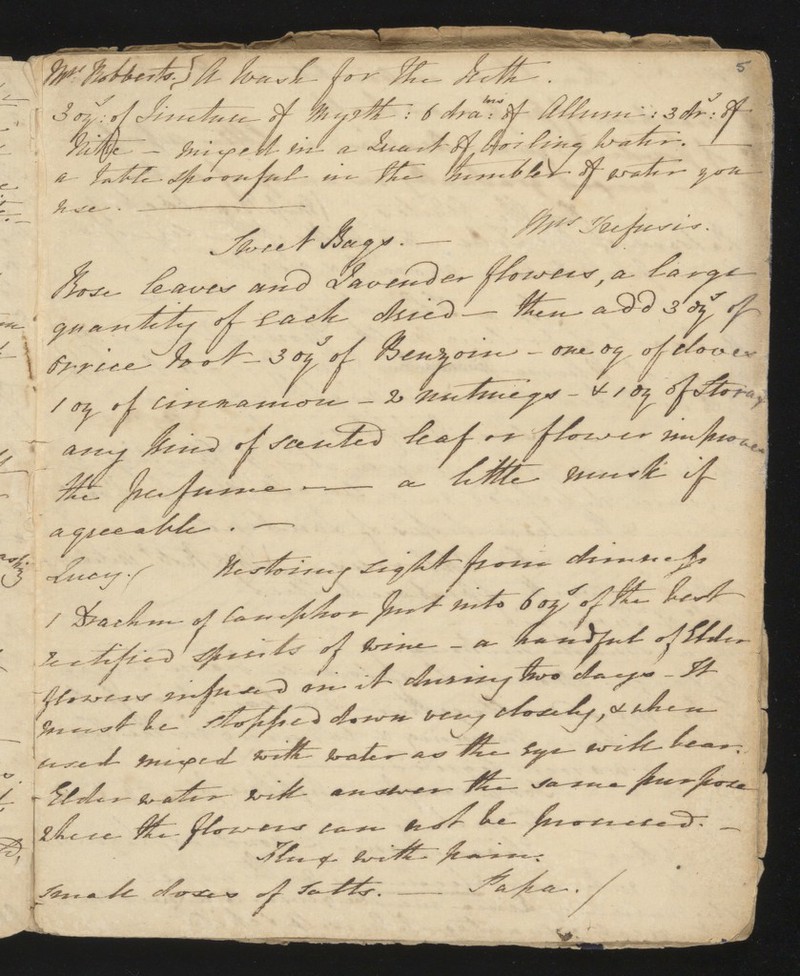 5
Mrs. Robberts.} A Wash for the Teeth.
3 ozs: of Tincture of Myrrh: 6 drams: of Allum: 3 drs: of
Nitre - mixed in a Quart of boiling water. —
a table spoonful in the tumbler of water you
use. —
Sweet Bags. — Mrs Trefusis.
Rose leaves and Lavender flowers, a large
quantity of each dried - then add 3 ozs of
orrice root - 3 ozs of Benzoin - one oz of cloves
1 oz of cinnamon - 2 nutmegs - & 1 oz of Storax
any kind of scented leaf or flower improves
the perfume — a little musk if
agreeable. —
Lucy./ Restoring sight from dimness
1 Drachm of camphor put into 6 ozs of the best
rectified spirits of wine - a handful of Elder
flowers infused in it during two days - It
must be stopped down very closely, & when
used mixed with water as the eye will bear.
Elder water will answer the same purpose
where the flowers can not be procured. —
Flux with pain.
small doses of salts. — Papa./